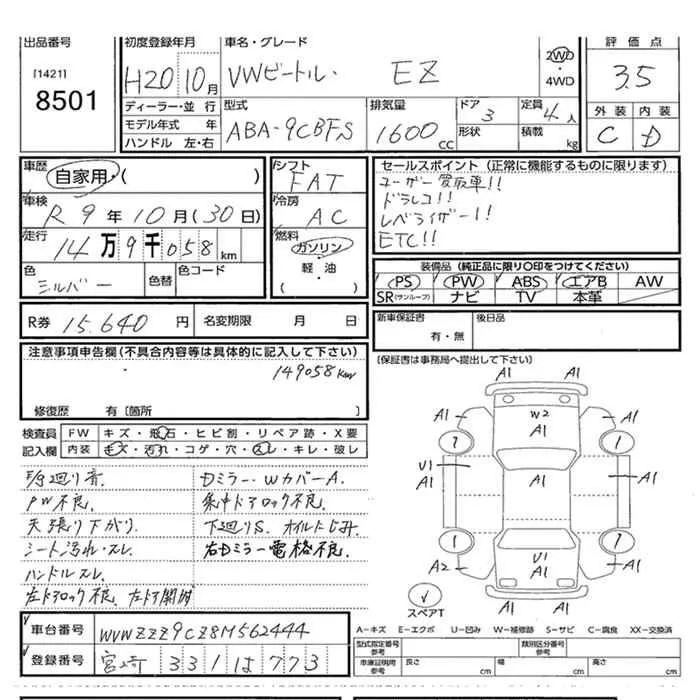 出品番号
[1421]
8501
初度登録年月
H20 10月
車名・グレード
VWビートル・ EZ
2WD
・
4WD
評価点
3.5
ディーラー・並行
モデル年式 年
ハンドル 左・右
型式
ABA-9CBFS
排気量
1600 cc
ドア
3
形状
定員
4人
積載
kg
外装 内装
C D
車歴
自家用・( )
車検
R9年10月(30日)
走行
14万9千058km
色
シルバー
色替
色コード
シフト
FAT
冷房
AC
燃料
ガソリン
軽・油
( )
セールスポイント(正常に機能するものに限ります)
ユーザー買取車!!
ドラレコ!!
レベライザー!!
ETC!!
装備品(純正品に限り○印をつけてください)
PS PW ABS エアB AW
SR(サンルーフ) ナビ TV 本革
R券 15.640円 名変期限 月 日
新車保証書
有・無
後日品
[保証書は事務局へ提出して下さい]
注意事項申告欄(不具合内容等は具体的に記入して下さい)
149058Km
修復歴 有[箇所 ]
検査員
記入欄
FW キズ・飛石・ヒビ割・リペア跡・X要
内装 キズ・汚れ・コゲ・穴・スレ・キレ・破レ
PW不良.
天張り下がり.
シート汚れ・スレ
ハンドルスレ
左ドアロック不良、
Dミラー・WカバーA.
集中ドアロック不良.
下廻りS. オイルにじみ.
右Dミラー電格不良.
A1
A1
A1
A1
A1
W2
A1
U1
A1
A1
A1
A2
U1
A1
A1
A1
スペアT
A-キズ E-エクボ U-凹み W-補修跡 S-サビ C-腐食 XX-交換済
車台番号
WVWZZZ9CZ8M562444
登録番号
宮崎 331 は 773
型式指定番号
参考
類別区分番号
参考
車庫証明用
参考
長さ cm
幅 cm
高さ cm